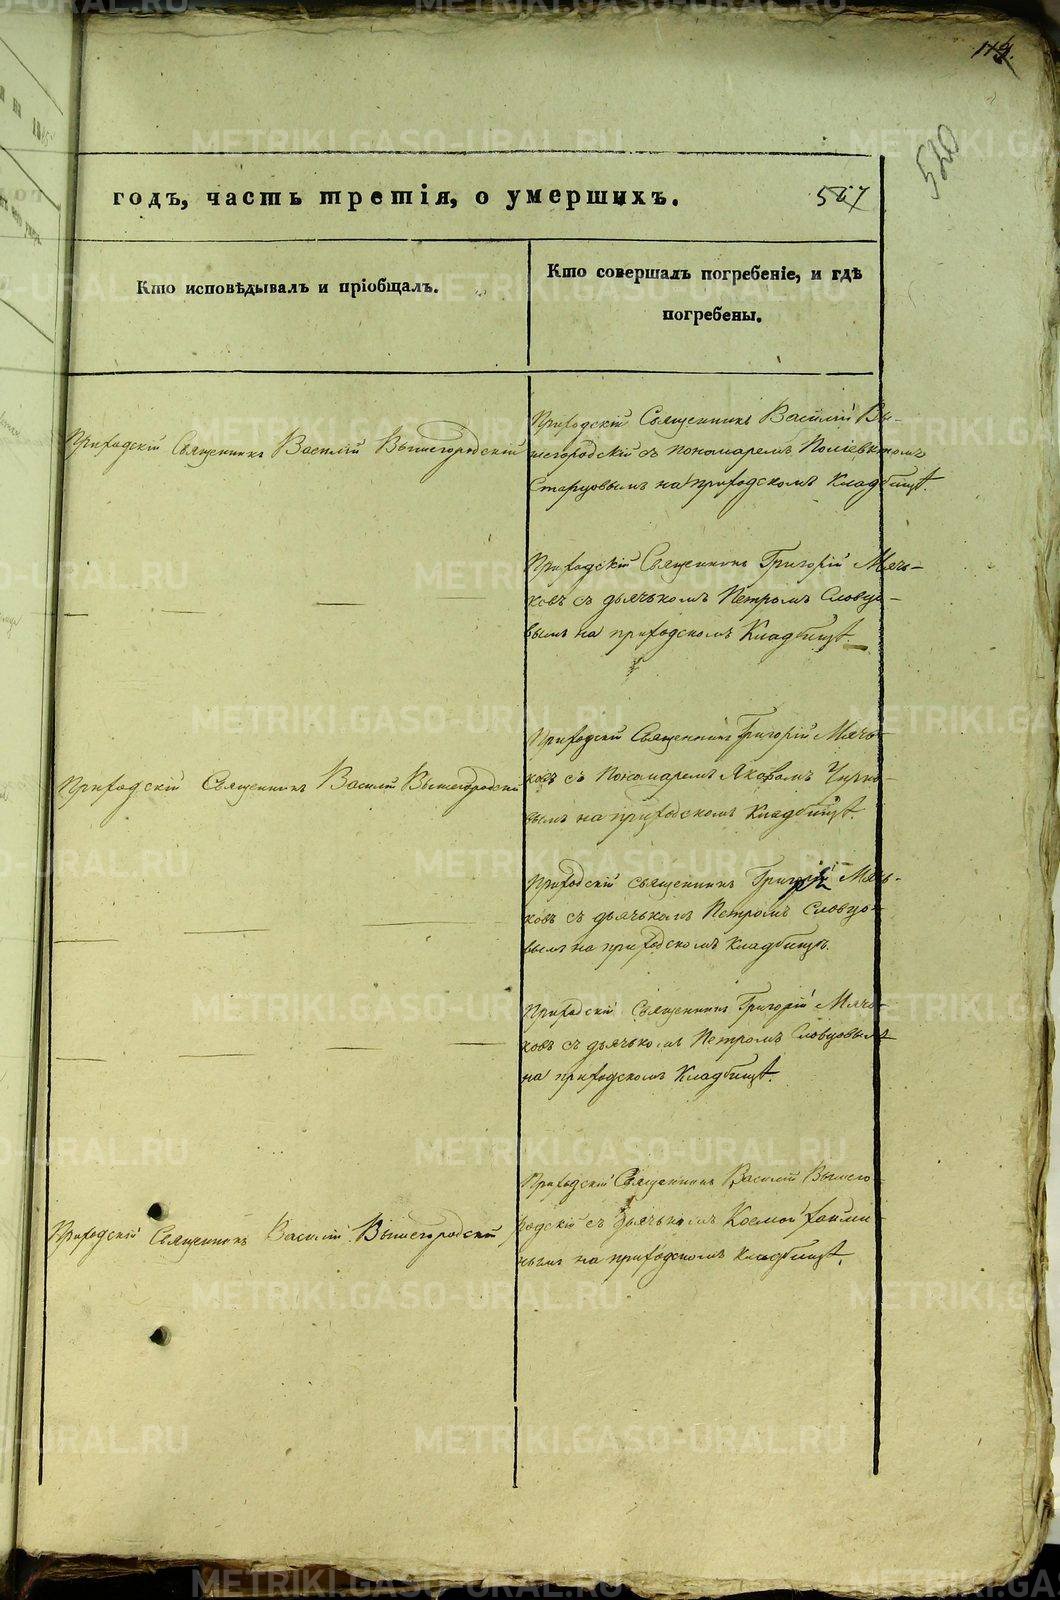 119.
520
годъ, часть третія, о умершихъ.
567
Кто исповѣдывалъ и пріобщалъ.
Кто совершалъ погребеніе, и гдѣ
погребены.
Приходскій Священникъ Василій Вышегородскій
Приходскій Священникъ Василій Вы-
шегородскій съ пономаремъ Поліевктомъ
Старцовымъ на приходскомъ Кладбищѣ.
Приходскій Священникъ Григорій Мячь-
ковъ съ дьячькомъ Петромъ Словцо-
вымъ на приходскомъ Кладбищѣ.
Приходскій Священникъ Василій Вышегородскій
Приходскій Священникъ Григорій Мячь-
ковъ съ Пономаремъ Яковомъ
вымъ на приходскомъ Кладбищѣ.
Приходскій священникъ Григорій Мячь-
ковъ съ дьячькомъ Петромъ Словцо-
вымъ на приходскомъ Кладбищѣ.
Приходскій Священникъ Григорій Мячь-
ковъ съ дьячькомъ Петромъ Словцовымъ
на приходскомъ Кладбищѣ.
Приходскій Священникъ Василій Вышегородскій
Приходскій Священникъ Василій Вышего-
родскій съ дьячькомъ Космою
на приходскомъ кладбищѣ.
METRIKI.GASO-URAL.RU